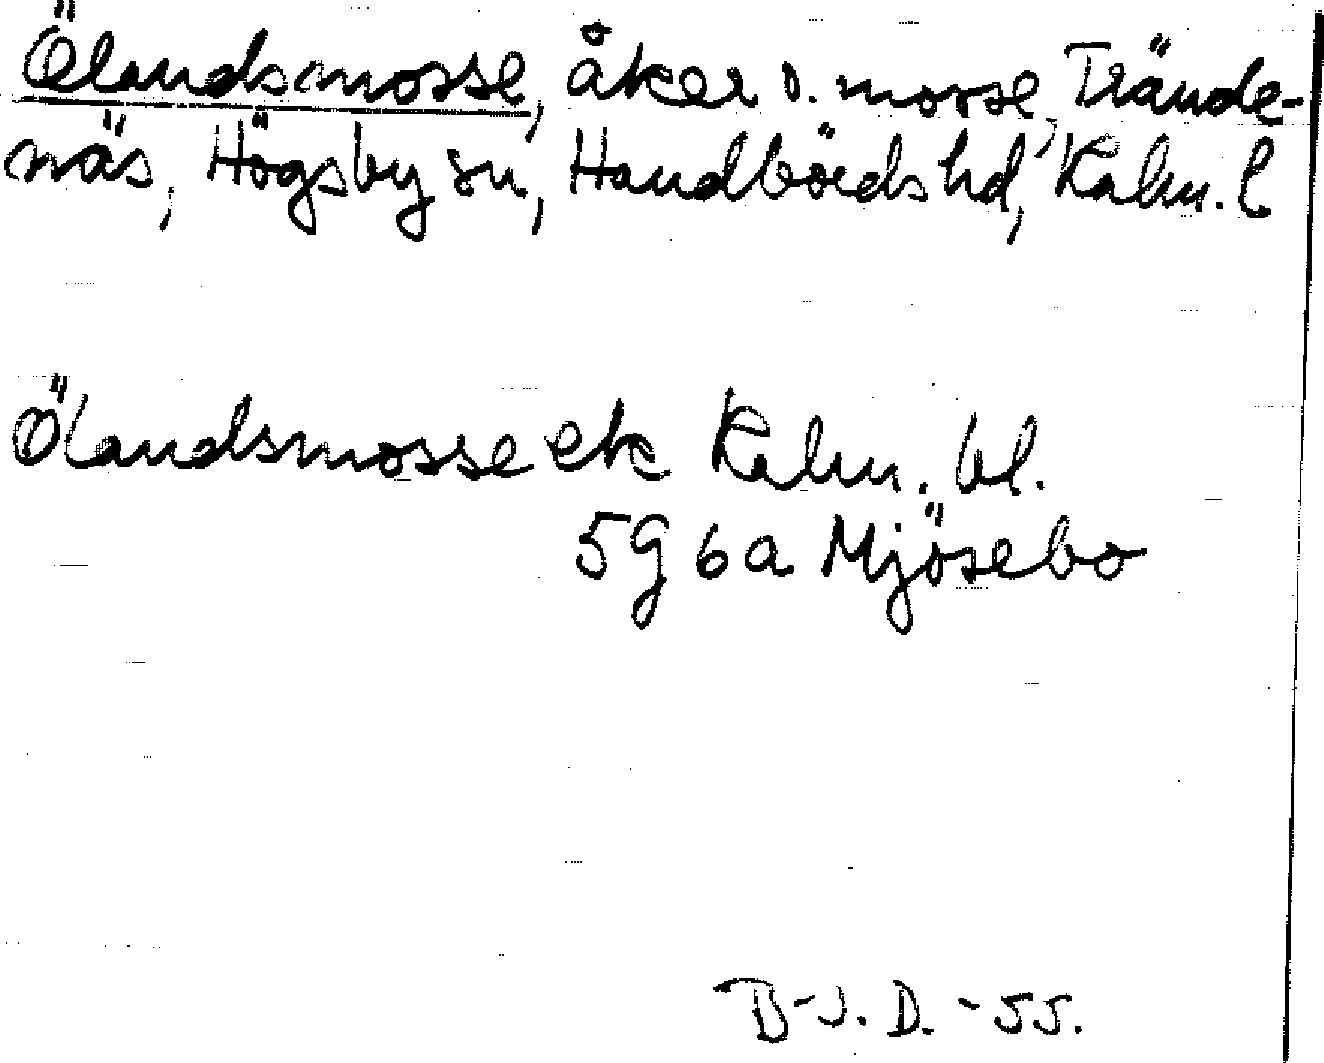 Ölandsmosse, åker o. mosse, Trände-
näs, Högsby sn, Handbörds hd, Kalm. l
Ölandsmosse ek Kalm. bl.
5G 6a Mjösebo
B-J. D. -55.